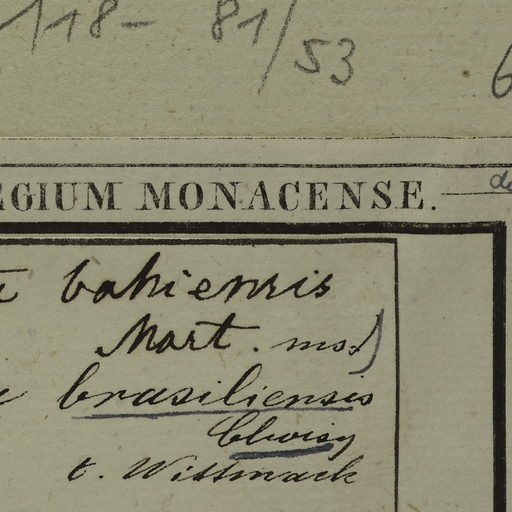 118- 81/53
EGIUM MONACENSE.
bahiensis
Mart. ms.)
brasiliensis
Choisy
t. Wittmack